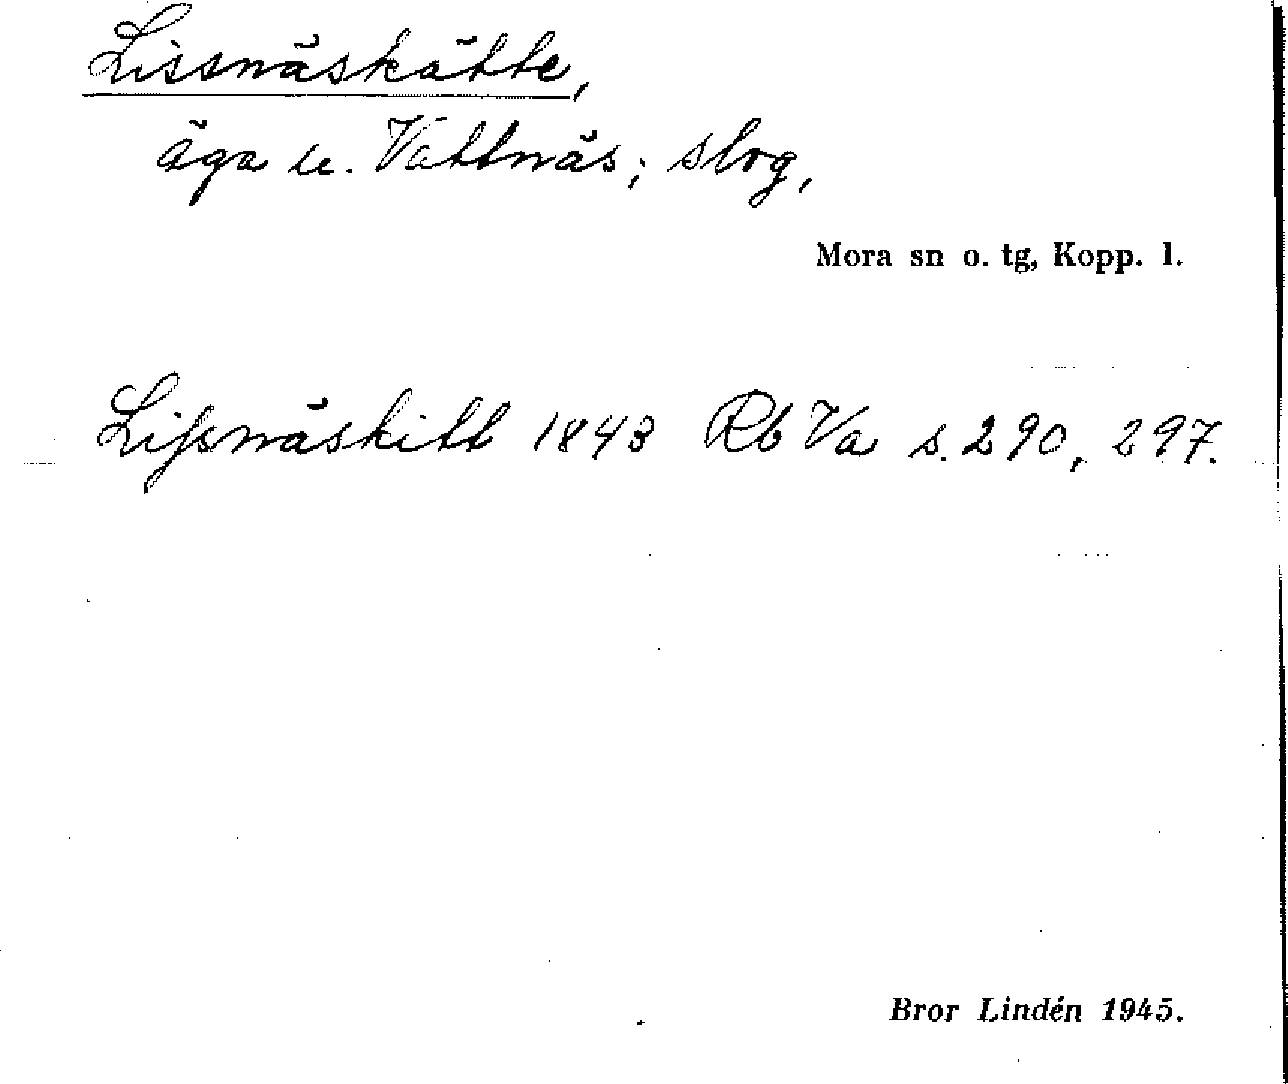 Lissnäskätte,
äga u. Vattnäs; slog,
Mora sn o. tg, Kopp. l.
Lissnäskitt 1843 Rb Va s. 290, 297.
Bror Lindén 1945.